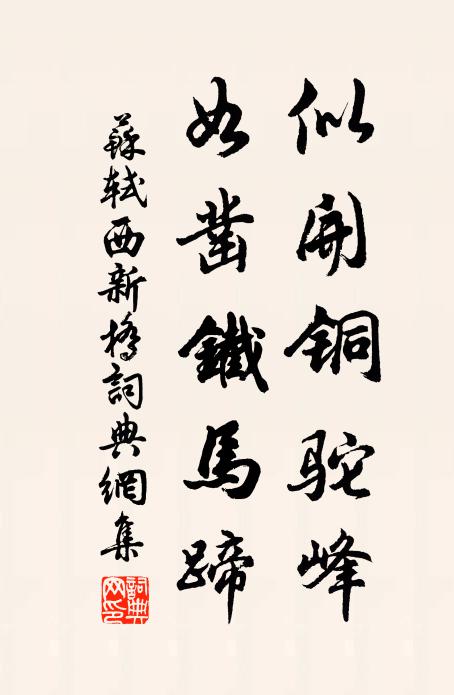 似开铜驼峰
如凿鐵馬蹄
蘇軾西新橋詞典網集
詞典网印